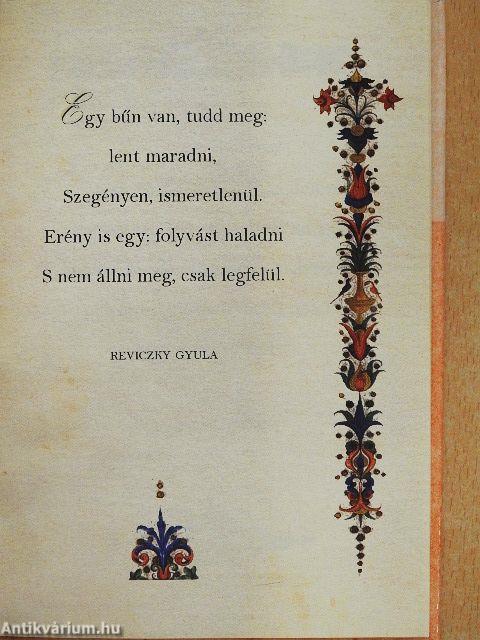 Egy bűn van, tudd meg:
lent maradni,
Szegényen, ismeretlenül.
Erény is egy: folyvást haladni
S nem állni meg, csak legfelül.
REVICZKY GYULA
Antikvárium.hu